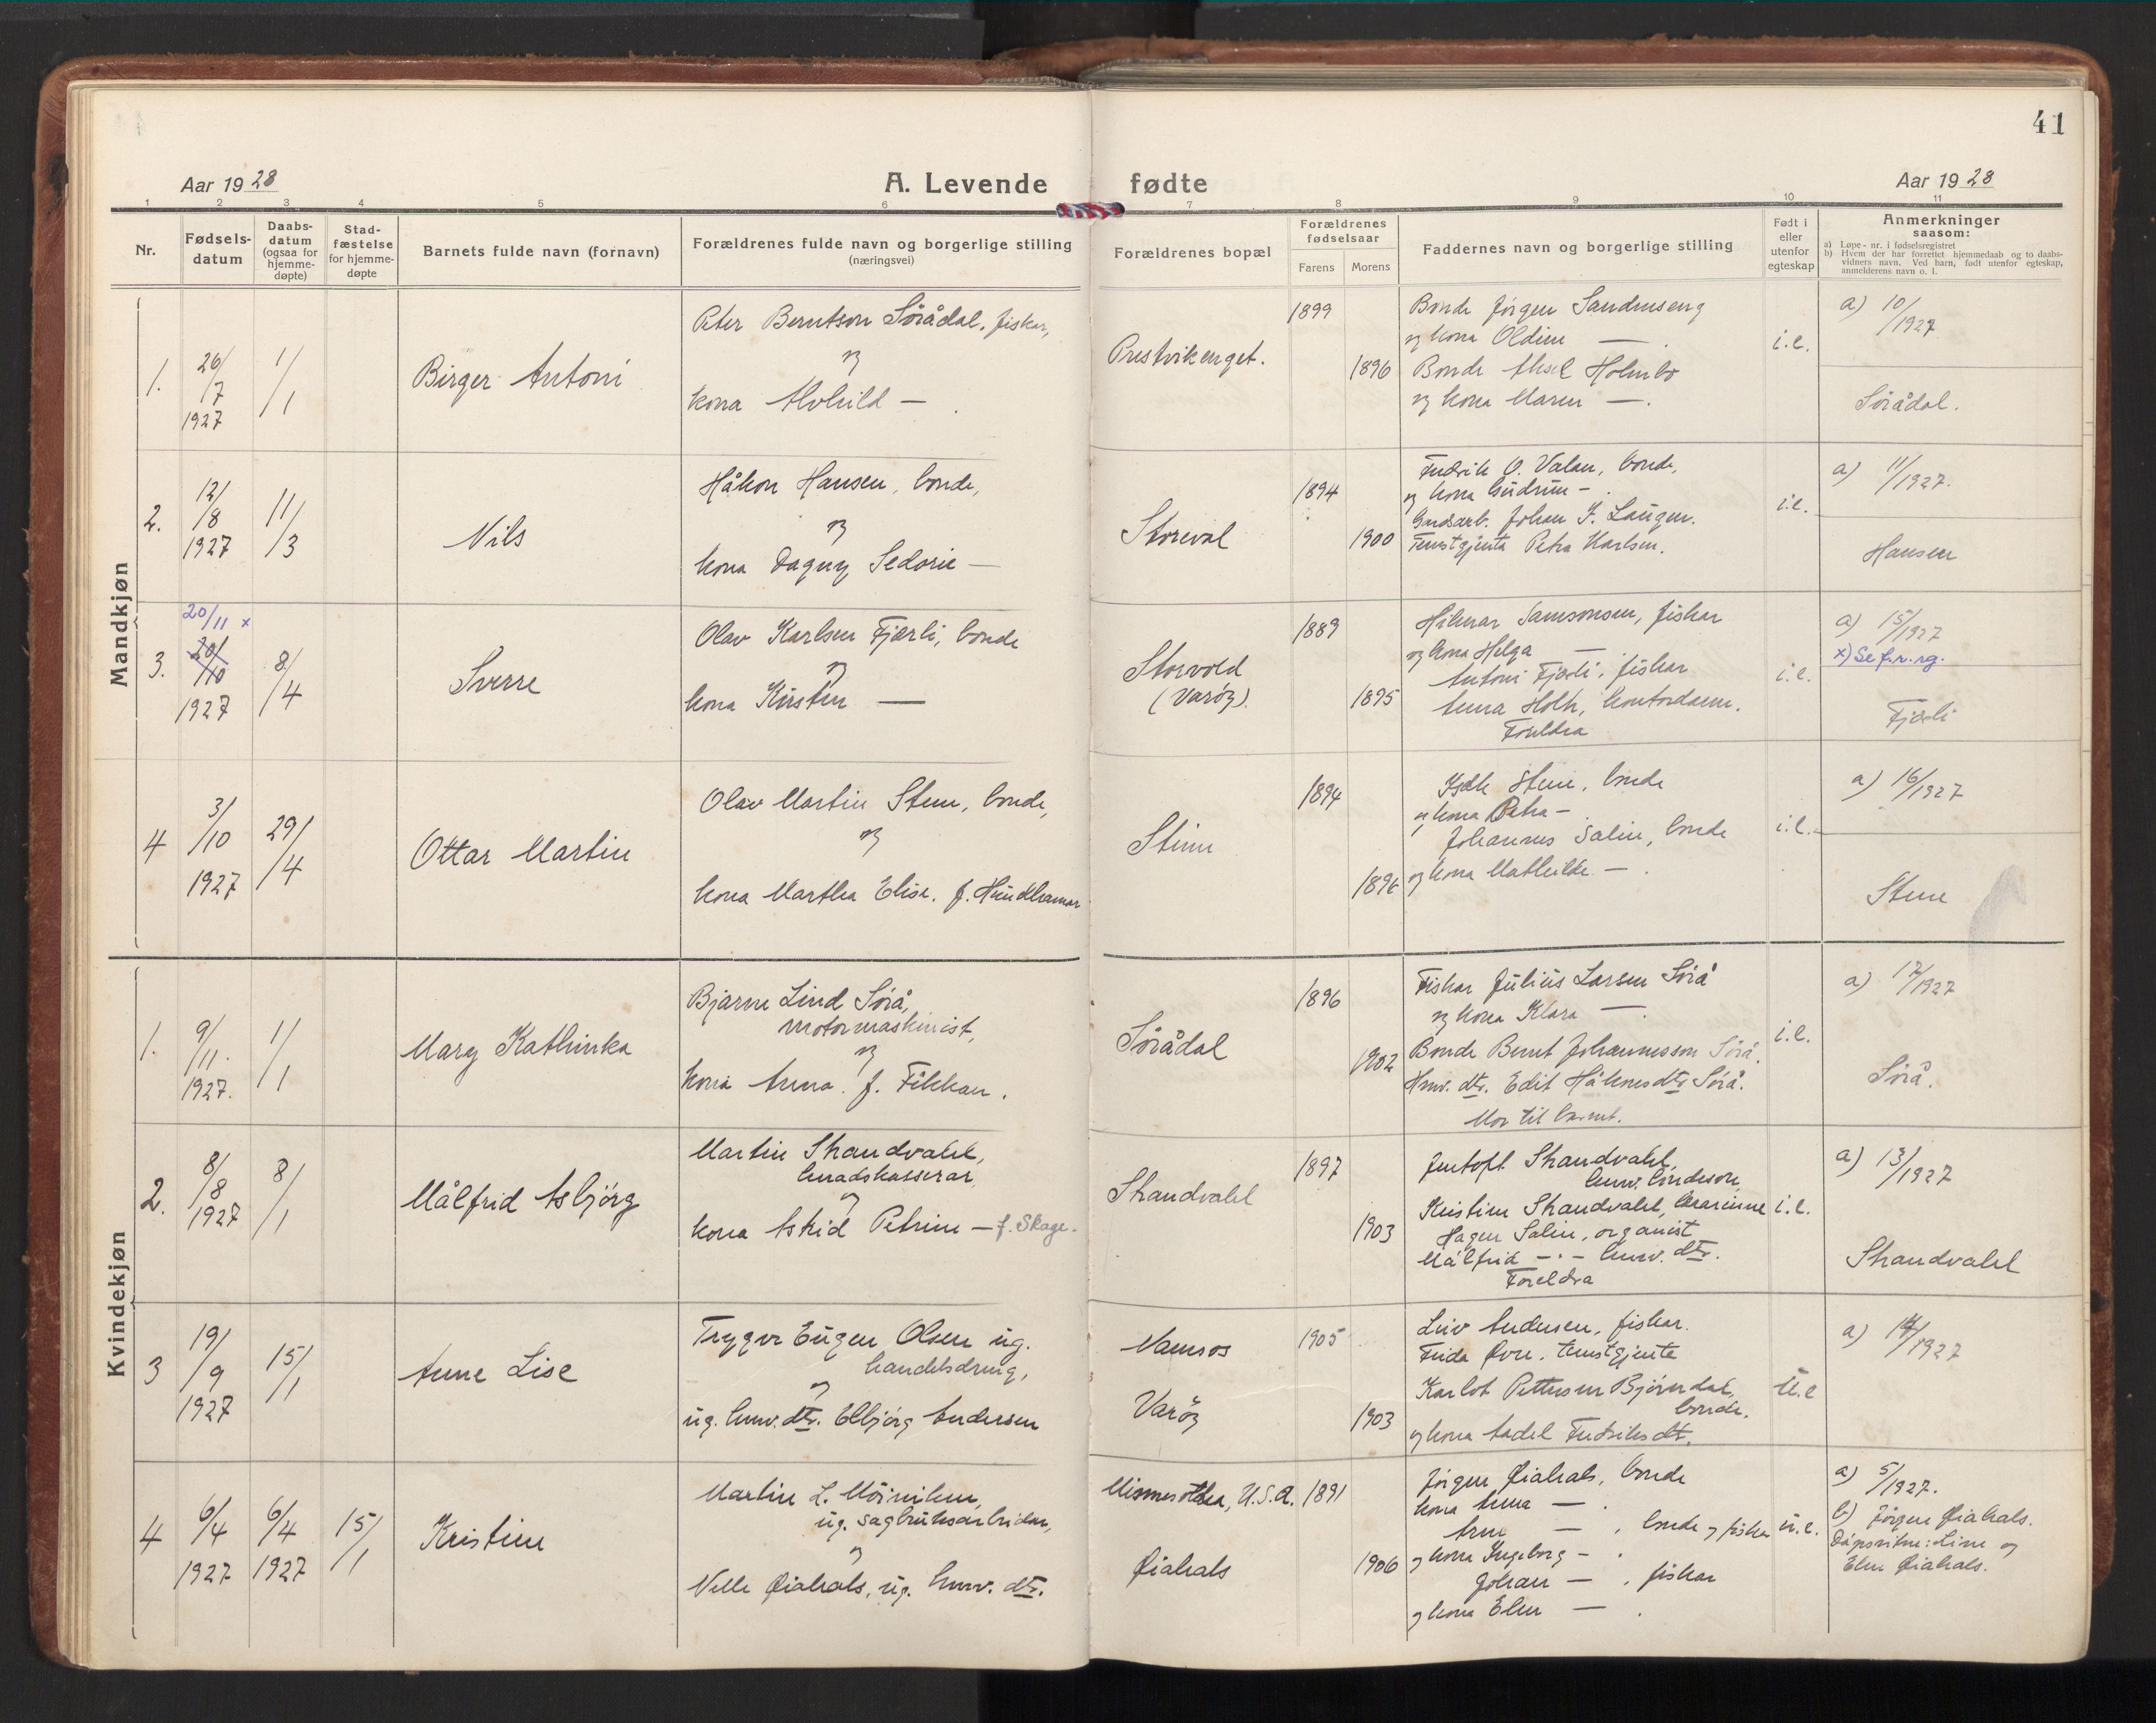 41
Aar 1928
A. Levende fødte
Aar 1928
1 2 3 4 5 6 7 8 9 10 11
Nr.
Fødsels-
datum
Daabs-
datum
(ogsaa for
hjemme-
døpte)
Stad-
fæstelse
for hjemme-
døpte
Barnets fulde navn (fornavn)
Forældrenes fulde navn og borgerlige stilling
(næringsvei)
Forældrenes bopæl
Forældrenes
fødselsaar
Farens Morens
Faddernes navn og borgerlige stilling
Født i
eller
utenfor
egteskap
Anmerkninger
saasom:
a) Løpe-nr. i fødselsregistret
b) Hvem der har forrettet hjemmedaab og to daabs-
vidners navn. Ved barn, født utenfor egteskap,
anmelderens navn o. l.
Mandkjøn
1.
26/7
1927
1/1
Birger Antoni
Peter Berntson Sörådal, fiskar,
og
kona Alvhild —
Prestvikenget.
1899
1896
Bonde Jörgen Sandnuseng
og kona Oldine —
Bonde Aksel Holmbo
og kona Maren —.
i.e.
a) 10/1927
Sörådal.
2.
12/8
1927
11/3
Nils
Håkon Hansen, bonde,
og
kona Dagny Sedorie —
Storeval
1894
1900
Fredrik O. Valan, bonde,
og kona Gudrun —.
Grudsarb. Johan F. Laugen.
Tenestgjenta Petra Karlsen.
i.e.
a) 11/1927.
Hansen
3.
20/11 x
20/10
1927
8/4
Sverre
Olav Karlsen Fjærli, bonde
og
kona Kirsten —
Storvold
(Varöy).
1889
1895
Hilmar Samsonsen, fiskar
og kona Helga —
Antoni Fjærli, fiskar
Anna Holh, kontordame.
Foreldra
i.e.
a) 15/1927
x) Se f.r. rg.
Fjærli
4
3/10
1927
29/4
Ottar Martin
Olav Martin Stene, bonde,
og
kona Martha Elise. f. Hundhamar
Stene
1894
1896
Stene, bonde
og kona Petra —.
Johannes Salin, bonde
og kona Mathilde —.
i.e.
a) 16/1927
Stene
Kvindekjøn
1.
9/11.
1927.
1/1
Mary Kathinka
Bjarne Lind Sörå,
motormaskinist,
og
kona Anna. f. Fikkan.
Sörådal
1896
1902
Fiskar Julius Larsen Sörå
og kona Klara —.
Bonde Bernt Johannesson Sörå.
Hmv. dtr. Edit Håkonsdtr Sörå.
Mor til barnet.
i.e.
a) 17/1927
Sörå.
2.
8/8
1927
8/1
Målfrid Asbjörg
Martin Strandvahl,
heradskasserar,
og
kona Astrid Petrine — f. Skage.
Strandvahl
1897
1903
Jentoft Strandvahl,
hmv. bondeson
Kristine Strandvahl, lærarinne
Hagen Salin, organist
Målfrid — " — hmv. dtr.
Foreldra
i.e.
a) 13/1927
Strandvahl
3
19/9
1927
15/1
Anne Lise
Trygve Eugen Olsen ug.
handelsdreng,
og
ug. hmv. dtr. Elbjörg Andersen
Namsos
Varöy
1905
1903
Leiv Andersen, fiskar.
Frida Övre. tenestgjente
Karlot Pettersen Björndal,
bonde.
og kona Aadel Fredriksdt.
u.e
a) 14/1927
4
6/4
1927
6/4
1927
15/1
Kristine
Martin L. Mörviken,
ug. sagbruksarbeidar,
og
Nelle Øiahals, ug. hmv. dtr.
Minnesota, U.S.A.
Øiahals
1891
1906
Jörgen Øiahals, bonde
kona Anna —.
Arne —, bonde og fiskar
og kona Ingeborg —.
Johan —, fiskar
og kona Elen —.
u.e.
a) 5/1927.
b) Jörgen Øiahals.
Dåpsvitne: Line og
Elen Øiahals.